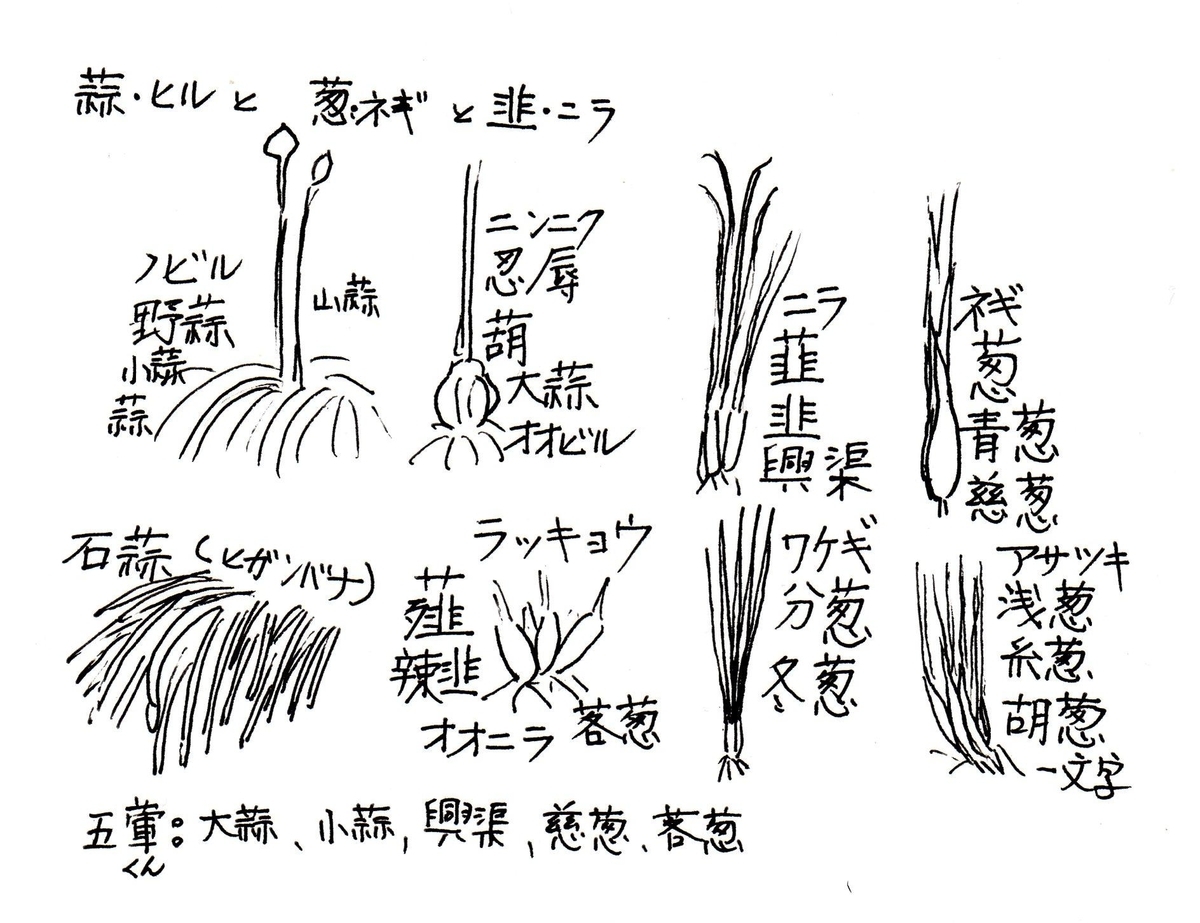 蒜・ヒルと 葱・ネギと韭・ニラ
ノビル
野蒜
小蒜
蒜
山蒜
ニンニク
忍辱
葫
大蒜
オオビル
ニラ
韮
韭
興渠
ネギ
葱
青葱
慈葱
石蒜(ヒガンバナ)
ラッキョウ
薤
辣韭
オオニラ
茖葱
ワケギ
分葱
冬葱
アサツキ
浅葱
糸葱
胡葱
一文字
五葷:大蒜、小蒜,興渠,慈葱、茖葱
くん